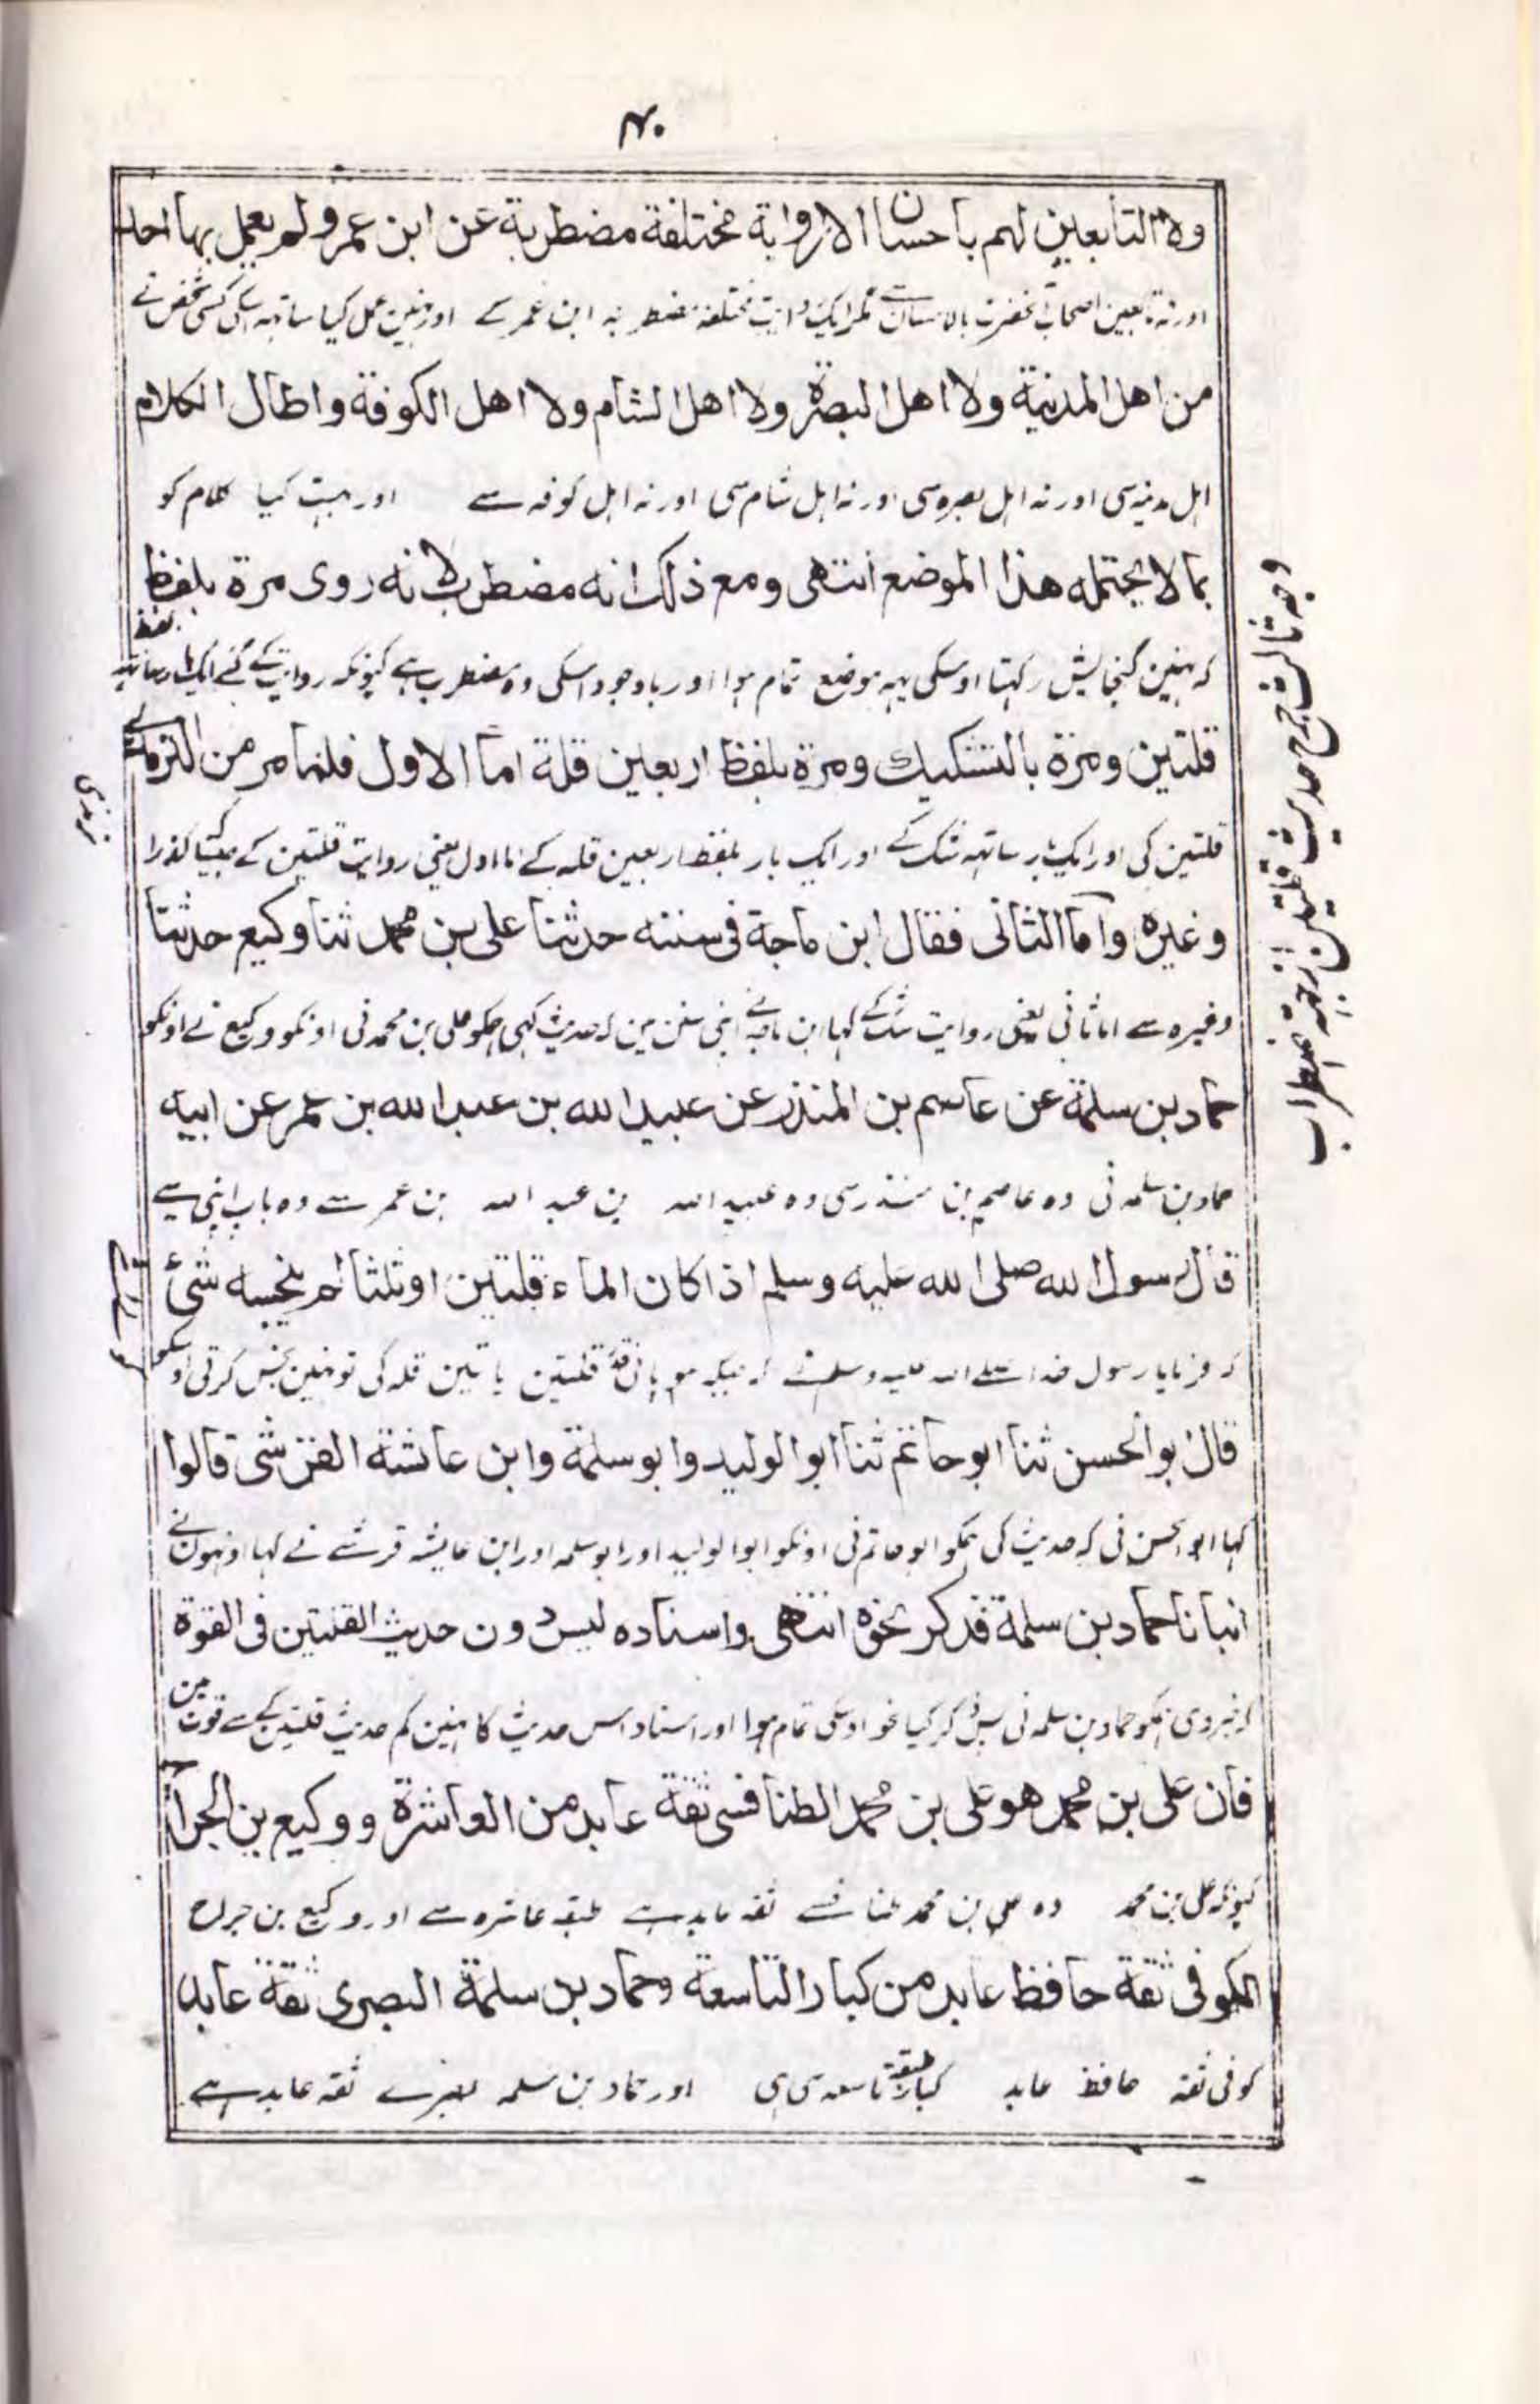 ۴۰
ولا التابعین لهم باحسان الا روایة مختلفة مضطربة عن ابن عمر ولم یعمل بها احد
اور نہ تابعین اصحاب آنحضرت بالاحسان سے مگر ایک روایت مختلفہ مضطربہ ابن عمر کے اور نہین عمل کیا ساتہہ اسکی کسی شخص نے
من اهل المدینة ولا اهل البصرة ولا اهل الشام ولا اهل الکوفة واطال الکلام
اہل مدینہ سی اور نہ اہل بصرہ سی اور نہ اہل شام سی اور نہ اہل کوفہ سے اور بہت کیا کلام کو
بما لا یحتمله هذا الموضع انتهی ومع ذلک انه مضطرب لانه روی مرة بلفظ
کہ نہین گنجایش رکہتا اوسکی یہہ موضع تمام ہوا اور باوجود اسکی وہ مضطرب ہے کیونکہ روایت کے گئے ایک بار ساتہہ لفظ
قلتین ومرة بالتشکیک ومرة بلفظ اربعین قلة اما الاول فلما مر من الترمذی
قلتین کی اور ایک بار ساتہہ شک کے اور ایک بار بلفظ اربعین قلہ کے اما اول یعنی روایت قلتین کے جیسا گذرا
ترمذی
وغیره واما الثانی فقال ابن ماجة فی سننه حدثنا علی بن محمد ثنا وکیع حدثنا
وغیرہ سے اما ثانی یعنی روایت شک کے کہا ابن ماجہ نے اپنی سنن مین کہ حدیث کہی ہمکو علی بن محمد نی اونکو وکیع نے اونکو
حماد بن سلمة عن عاصم بن المنذر عن عبید الله بن عبد الله بن عمر عن ابیه
حماد بن سلمہ نی وہ عاصم بن منذر سی وہ عبید اللہ بن عبد اللہ بن عمر سے وہ باپ اپنی سے
قال رسول الله صلی الله علیه وسلم اذا کان الماء قلتین او ثلثا لم ینجسه شئ
کہ فرمایا رسول خدا صلے اللہ علیہ وسلم نے کہ جبکہ ہو پانی قلتین یا تین قلہ کی تو نہین نجس کرتی اوسکو
قال ابو الحسن ثنا ابو حاتم ثنا ابو الولید وابو سلمة وابن عایشة القرشی قالوا
کہا ابو الحسن نی کہ حدیث کی ہمکو ابو حاتم نی اونکو ابو الولید اور ابو سلمہ اور ابن عایشہ قرشے نے کہا اونہون نے
انبانا حماد بن سلمة فذکر نحوه انتهی واسناده لیس دون حدیث القلتین فی القوة
کہ خبر دی ہمکو حماد بن سلمہ نی پس ذکر کیا نحو اوسکی تمام ہوا اور اسناد اس حدیث کا نہین کم حدیث قلتین کے سے قوت مین
فان علی بن محمد هو علی بن محمد الطنافسی ثقة عابد من العاشرة ووکیع بن الجراح
کیونکہ علی بن محمد وہ علی بن محمد طنافسے ثقہ عابد ہے طبقہ عاشرہ سے اور وکیع بن جراح
الکوفی ثقة حافظ عابد من کبار التاسعة وحماد بن سلمة البصری ثقة عابد
کوفی ثقہ حافظ عابد کبار طبقہ تاسعہ سی ہی اور حماد بن سلمہ بصرے ثقہ عابد ہے
وجہ ثالث جرح حدیث قلتین از جہۃ اضطراب